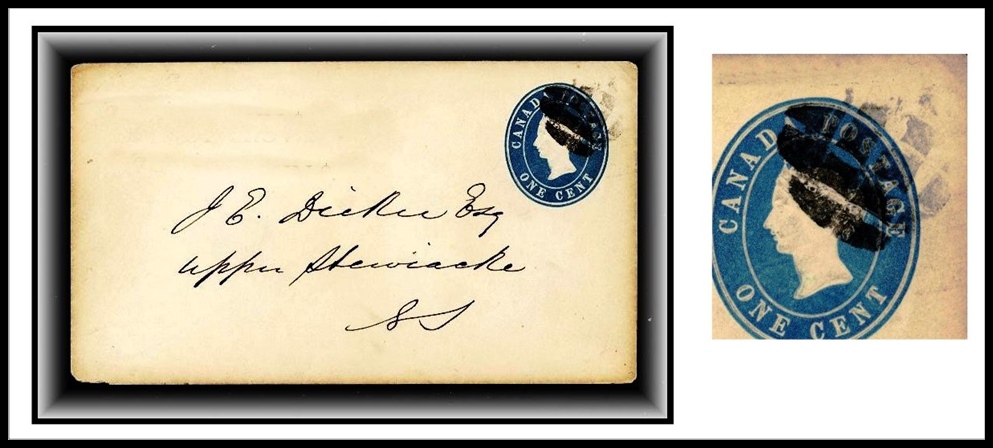 CANADA POSTAGE
ONE CENT
J E. Dickie Esq
Upper Stewiacke
N S
CANADA POSTAGE
ONE CENT